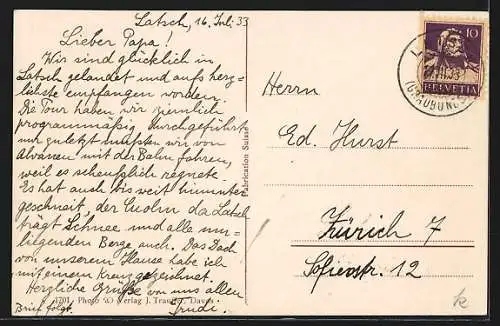 Latsch, 16. Juli 33
Lieber Papa!
Wir sind glücklich in
Latsch gelandet und aufs herz-
lichste empfangen worden.
Die Tour haben wir ziemlich
programmäßig durchgeführt
nur zuletzt mußten wir von
Alvaneu mit der Bahn fahren,
weil es scheußlich regnete.
Es hat auch bis weit hinunter
geschneit der Cuolm da Latsch
trägt Schnee und alle um-
liegenden Berge auch. Das Dach
von unserem Hause habe ich
mit einem Kreuz gezeichnet.
Herzliche Grüße von uns allen
Brief folgt. Trudi.
1701 Photo & Verlag J. Davos
Fabrication Suisse
10
HELVETIA
(GRAUBÜNDEN)
Herrn
Ed. Hurst
Zürich 7
Sofienstr. 12